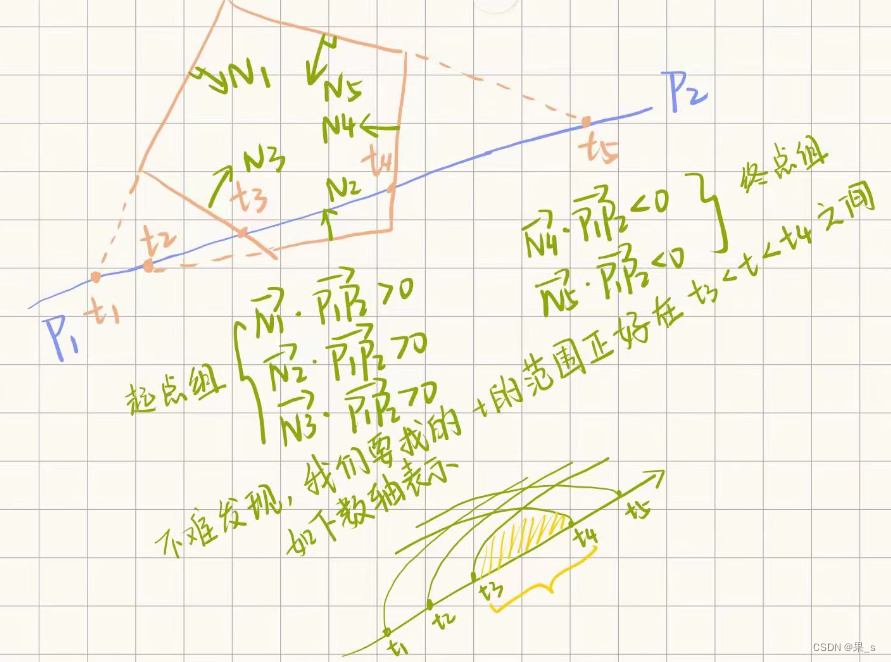 N1
N5
P2
N4
t5
N3
t4
t3
N2
t2
t1
P1
N4·P1P2<0
N5·P1P2<0
终点组
起点组
N1·P1P2>0
N2·P1P2>0
N3·P1P2>0
不难发现,我们要找的t的范围正好在t3<t<t4之间
如下数轴表示
t1
t2
t3
t4
t5
CSDN @果_s